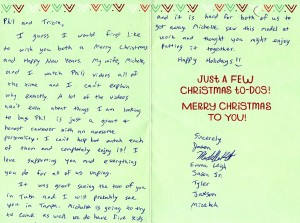 Phil and Tricia,
I guess I would first like
to wish you both a Merry Christmas
and Happy New Years. My wife, Michele,
and I watch Phil's videos all of
the time and I can't explain
why exactly. A lot of the videos
aren't even about things I am looking
to buy. Phil is just a great &
honest reviewer with an awesome
personality. I can't help but watch each
of them and completely enjoy it! I
love supporting you and everything
you do for all of us unpaid.
It was great seeing the two of
you in and I will probably see
you in Tampa. Michele is going to try
to come as well we do have five kids
and it is hard for both of us to
get away. Michele saw this model at
work and thought you might enjoy
putting it together.
Happy Holidays!!
JUST A FEW
CHRISTMAS TO-DOS!
MERRY CHRISTMAS
TO YOU!
Sincerely
Emma Leigh
Sean Jr.
Tyler
Jackson